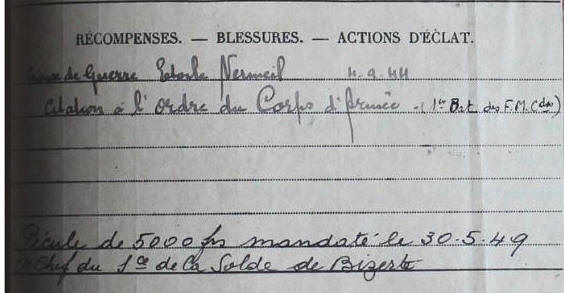 RÉCOMPENSES. — BLESSURES. — ACTIONS D'ÉCLAT.
Croix de Guerre Etoile Vermeil 4.9.44
Citation à l'Ordre du Corps d'Armée (1er Bat. des F.M. (Cdos)
Pécule de 5000 frs mandaté le 30.5.49
Chef du Sce de la Solde de Bizerte